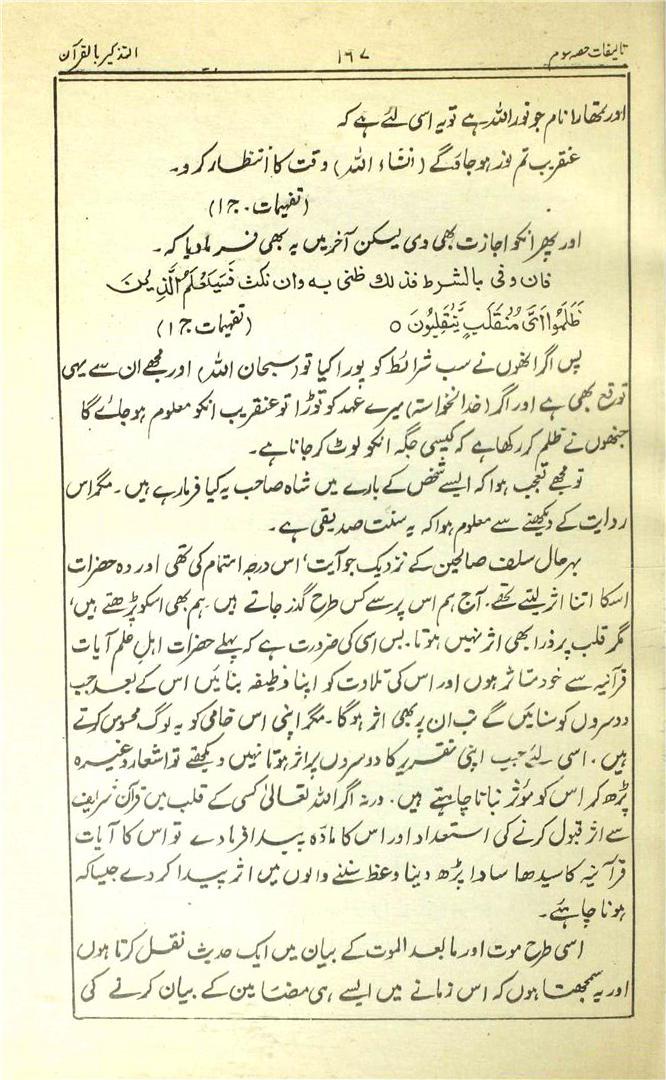 تالیفات حصہ سوم ۱۶۷ التذکیر بالقرآن
اور تمھارا نام جو نور اللہ ہے تو یہ اسی لئے ہے کہ
عنقریب تم نور ہو جاؤ گے (انشاء اللہ) وقت کا انتظار کرو۔
(تفہیمات۔ ج۱)
اور پھر انکو اجازت بھی دی لیکن آخر میں یہ بھی فرمادیا کہ۔
فان وفی بالشرط فذلك ظنی به وان نکث فَسَيَعْلَمُ الَّذِينَ
ظَلَمُوا اَیَّ مُنْقَلَبٍ یَّنْقَلِبُونَ ○ (تفہیمات ج۱)
پس اگر انھوں نے سب شرائط کو پورا کیا تو (سبحان اللہ) اور مجھے ان سے یہی
توقع بھی ہے اور اگر (خدانخواستہ) میرے عہد کو توڑا تو عنقریب انکو معلوم ہو جائے گا
جنھوں نے ظلم کر رکھا ہے کہ کیسی جگہ انکو لوٹ کر جانا ہے۔
تو مجھے تعجب ہوا کہ ایسے شخص کے بارے میں شاہ صاحب یہ کیا فرما رہے ہیں۔ مگر اس
روایت کے دیکھنے سے معلوم ہوا کہ یہ سنت صدیقی ہے۔
بہرحال سلف صالحین کے نزدیک جو آیت، اس درجہ اہتمام کی تھی اور وہ حضرات
اسکا اتنا اثر لیتے تھے۔ آج ہم اس پر سے کس طرح گذر جاتے ہیں۔ ہم بھی اسکو پڑھتے ہیں،
مگر قلب پر ذرا بھی اثر نہیں ہوتا۔ بس اسی کی ضرورت ہے کہ پہلے حضرات اہل علم آیات
قرآنیہ سے خود متاثر ہوں اور اس کی تلاوت کو اپنا وظیفہ بنائیں اس کے بعد جب
دوسروں کو سنائیں گے تب ان پر بھی اثر ہوگا۔ مگر اپنی اس خامی کو یہ لوگ محسوس کرتے
ہیں۔ اسی لئے جب اپنی تقریر کا دوسروں پر اثر ہوتا نہیں دیکھتے تو اشعار وغیرہ
پڑھ کر اس کو مؤثر بنانا چاہتے ہیں۔ ورنہ اگر اللہ تعالیٰ کسی کے قلب میں قرآن شریف
سے اثر قبول کرنے کی استعداد اور اس کا مادّہ پیدا فرما دے تو اس کا آیات
قرآنیہ کا سیدھا سادا پڑھ دینا وعظ سننے والوں میں اثر پیدا کر دے جیسا کہ
ہونا چاہئے۔
اسی طرح موت اور ما بعد الموت کے بیان میں ایک حدیث نقل کرتا ہوں
اور یہ سمجھتا ہوں کہ اس زمانے میں ایسے ہی مضامین کے بیان کرنے کی